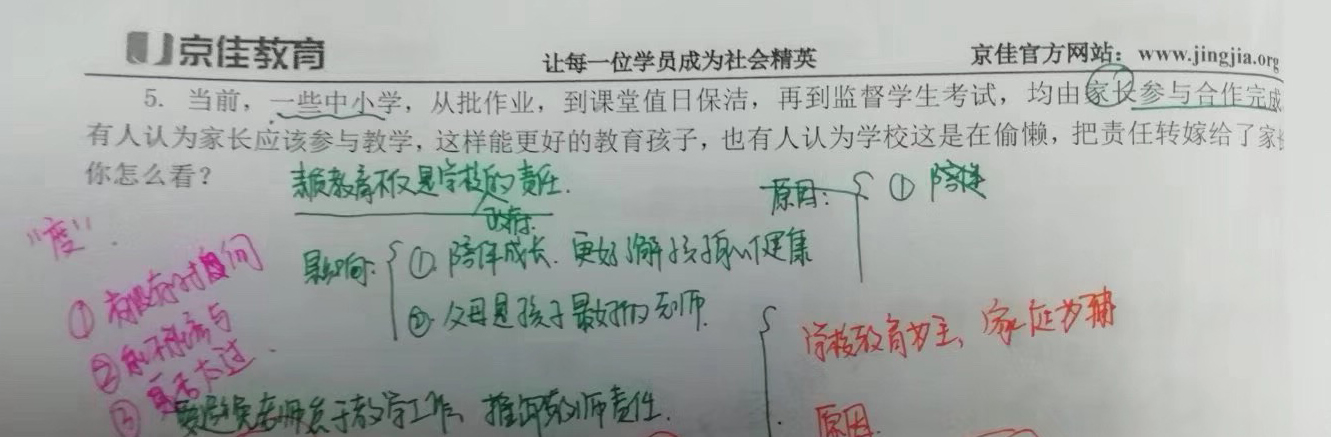 京佳教育
让每一位学员成为社会精英
京佳官方网站：www.jingjia.org
5. 当前，一些中小学，从批作业，到课堂值日保洁，再到监督学生考试，均由家长参与合作完成
有人认为家长应该参与教学，这样能更好的教育孩子，也有人认为学校这是在偷懒，把责任转嫁给了家长
你怎么看？
素质教育不仅是学校的责任.
政府.
原因：
① 陪伴
"度".
影响：
① 陪伴成长. 更好了解孩子
② 父母是孩子最好的老师.
① 有没有时间
②
是否太过.
学校教育为主、家庭为辅
③
要避免老师怠于教学工作, 推卸教师责任.
原因.